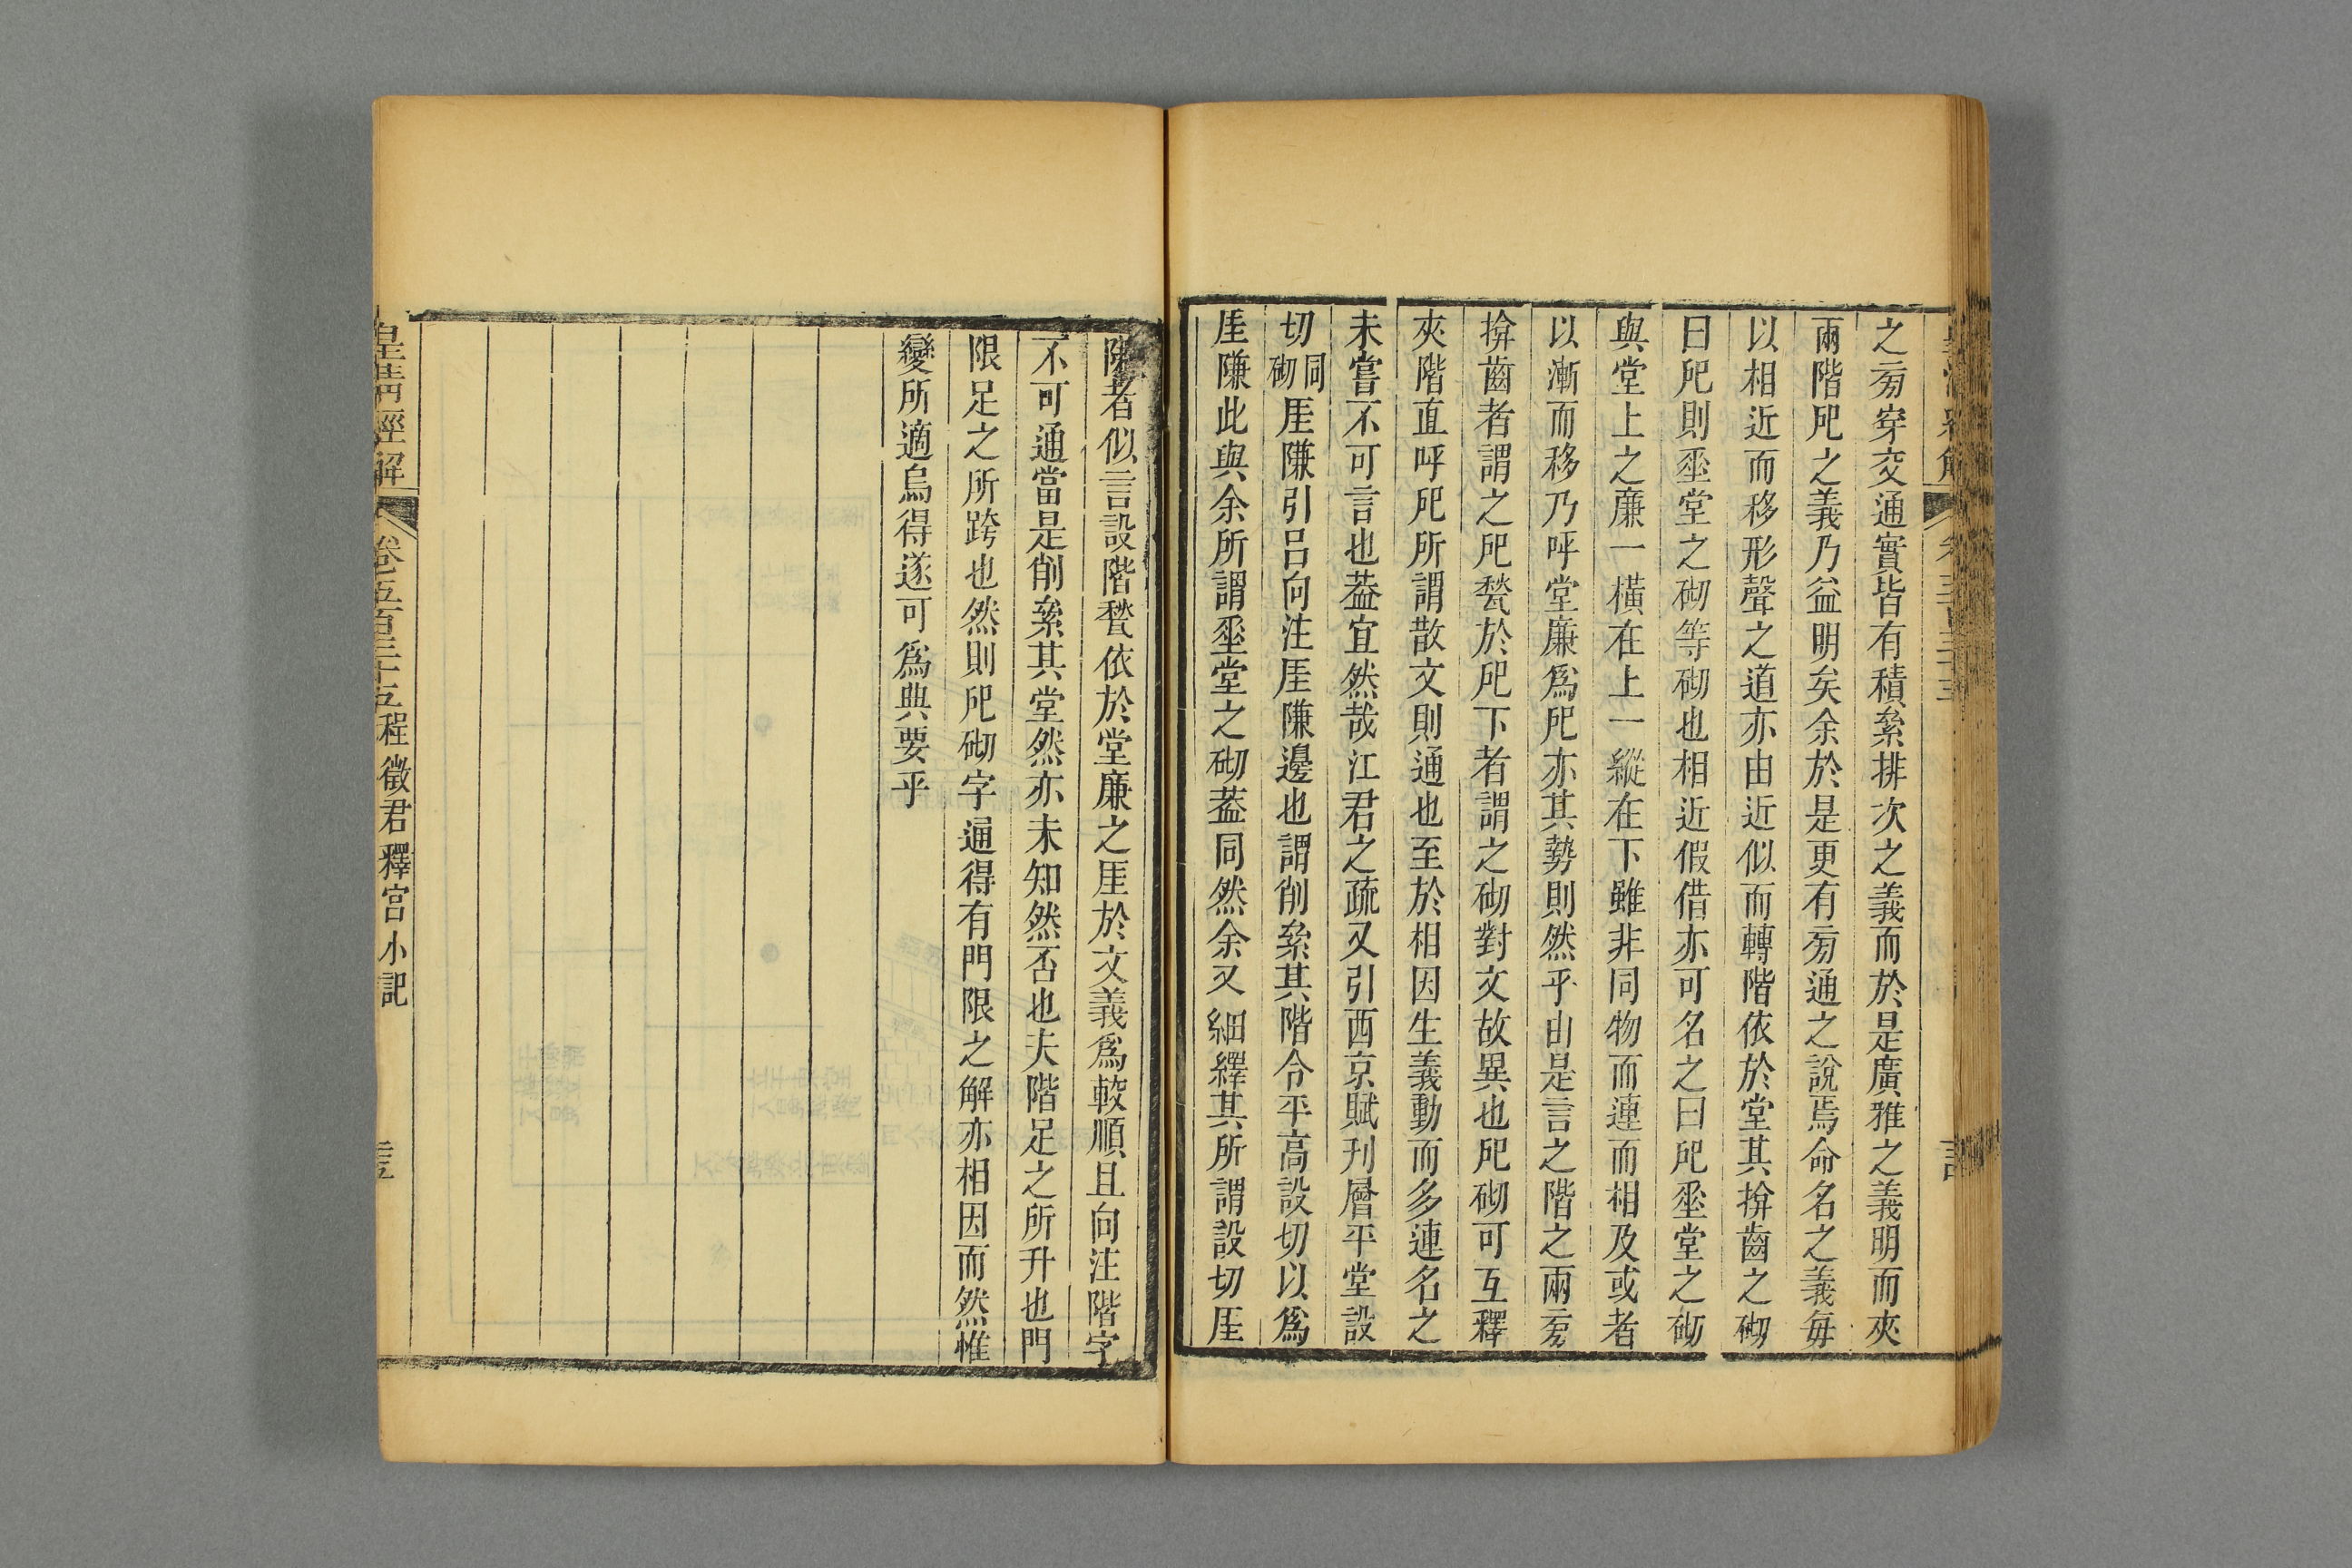 之㫄穿交通實皆有積絫排次之義而於是廣雅之義明而夾
兩階戺之義乃益明矣余於是更有㫄通之說焉命名之義毎
以相近而移形聲之道亦由近似而轉階依於堂其揜齒之砌
曰戺則坖堂之砌等砌也相近假借亦可名之曰戺坖堂之砌
與堂上之廉一橫在上一縱在下雖非同物而連而相及或者
以漸而移乃呼堂廉爲戺亦其勢則然乎由是言之階之兩㫄
揜齒者謂之戺甃於戺下者謂之砌對文故異也戺砌可互釋
夾階直呼戺所謂散文則通也至於相因生義動而多連名之
未嘗不可言也葢宜然哉江君之疏又引西京賦刋層平堂設
切同砌厓隒引呂向注厓隒邊也謂削絫其階令平高設切以爲
厓隒此與余所謂坖堂之砌葢同然余又細繹其所謂設切厓
隒者似言設階甃依於堂廉之厓於文義爲較順且向注階字
不可通當是削絫其堂然亦未知然否也夫階足之所升也門
限足之所跨也然則戺砌字通得有門限之解亦相因而然惟
變所適烏得遂可爲典要乎
皇淸經解 卷五百三十五 程徵君釋宮小記